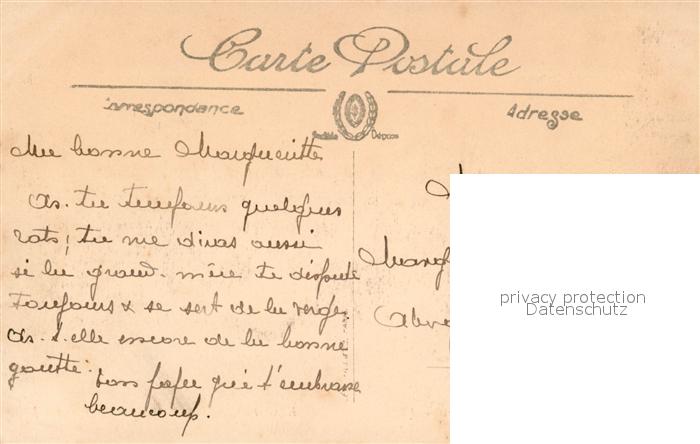 Carte Postale
Correspondance
Adresse
Modèle Déposé
Ma bonne Marguerite
As-tu toujours quelques
rats, tu me diras aussi
si la grand-mère te dispute
toujours & se sert de la verge,
As-t-elle encore de la bonne
goutte.
Ton papa qui t'embrasse
beaucoup.
privacy protection
Datenschutz